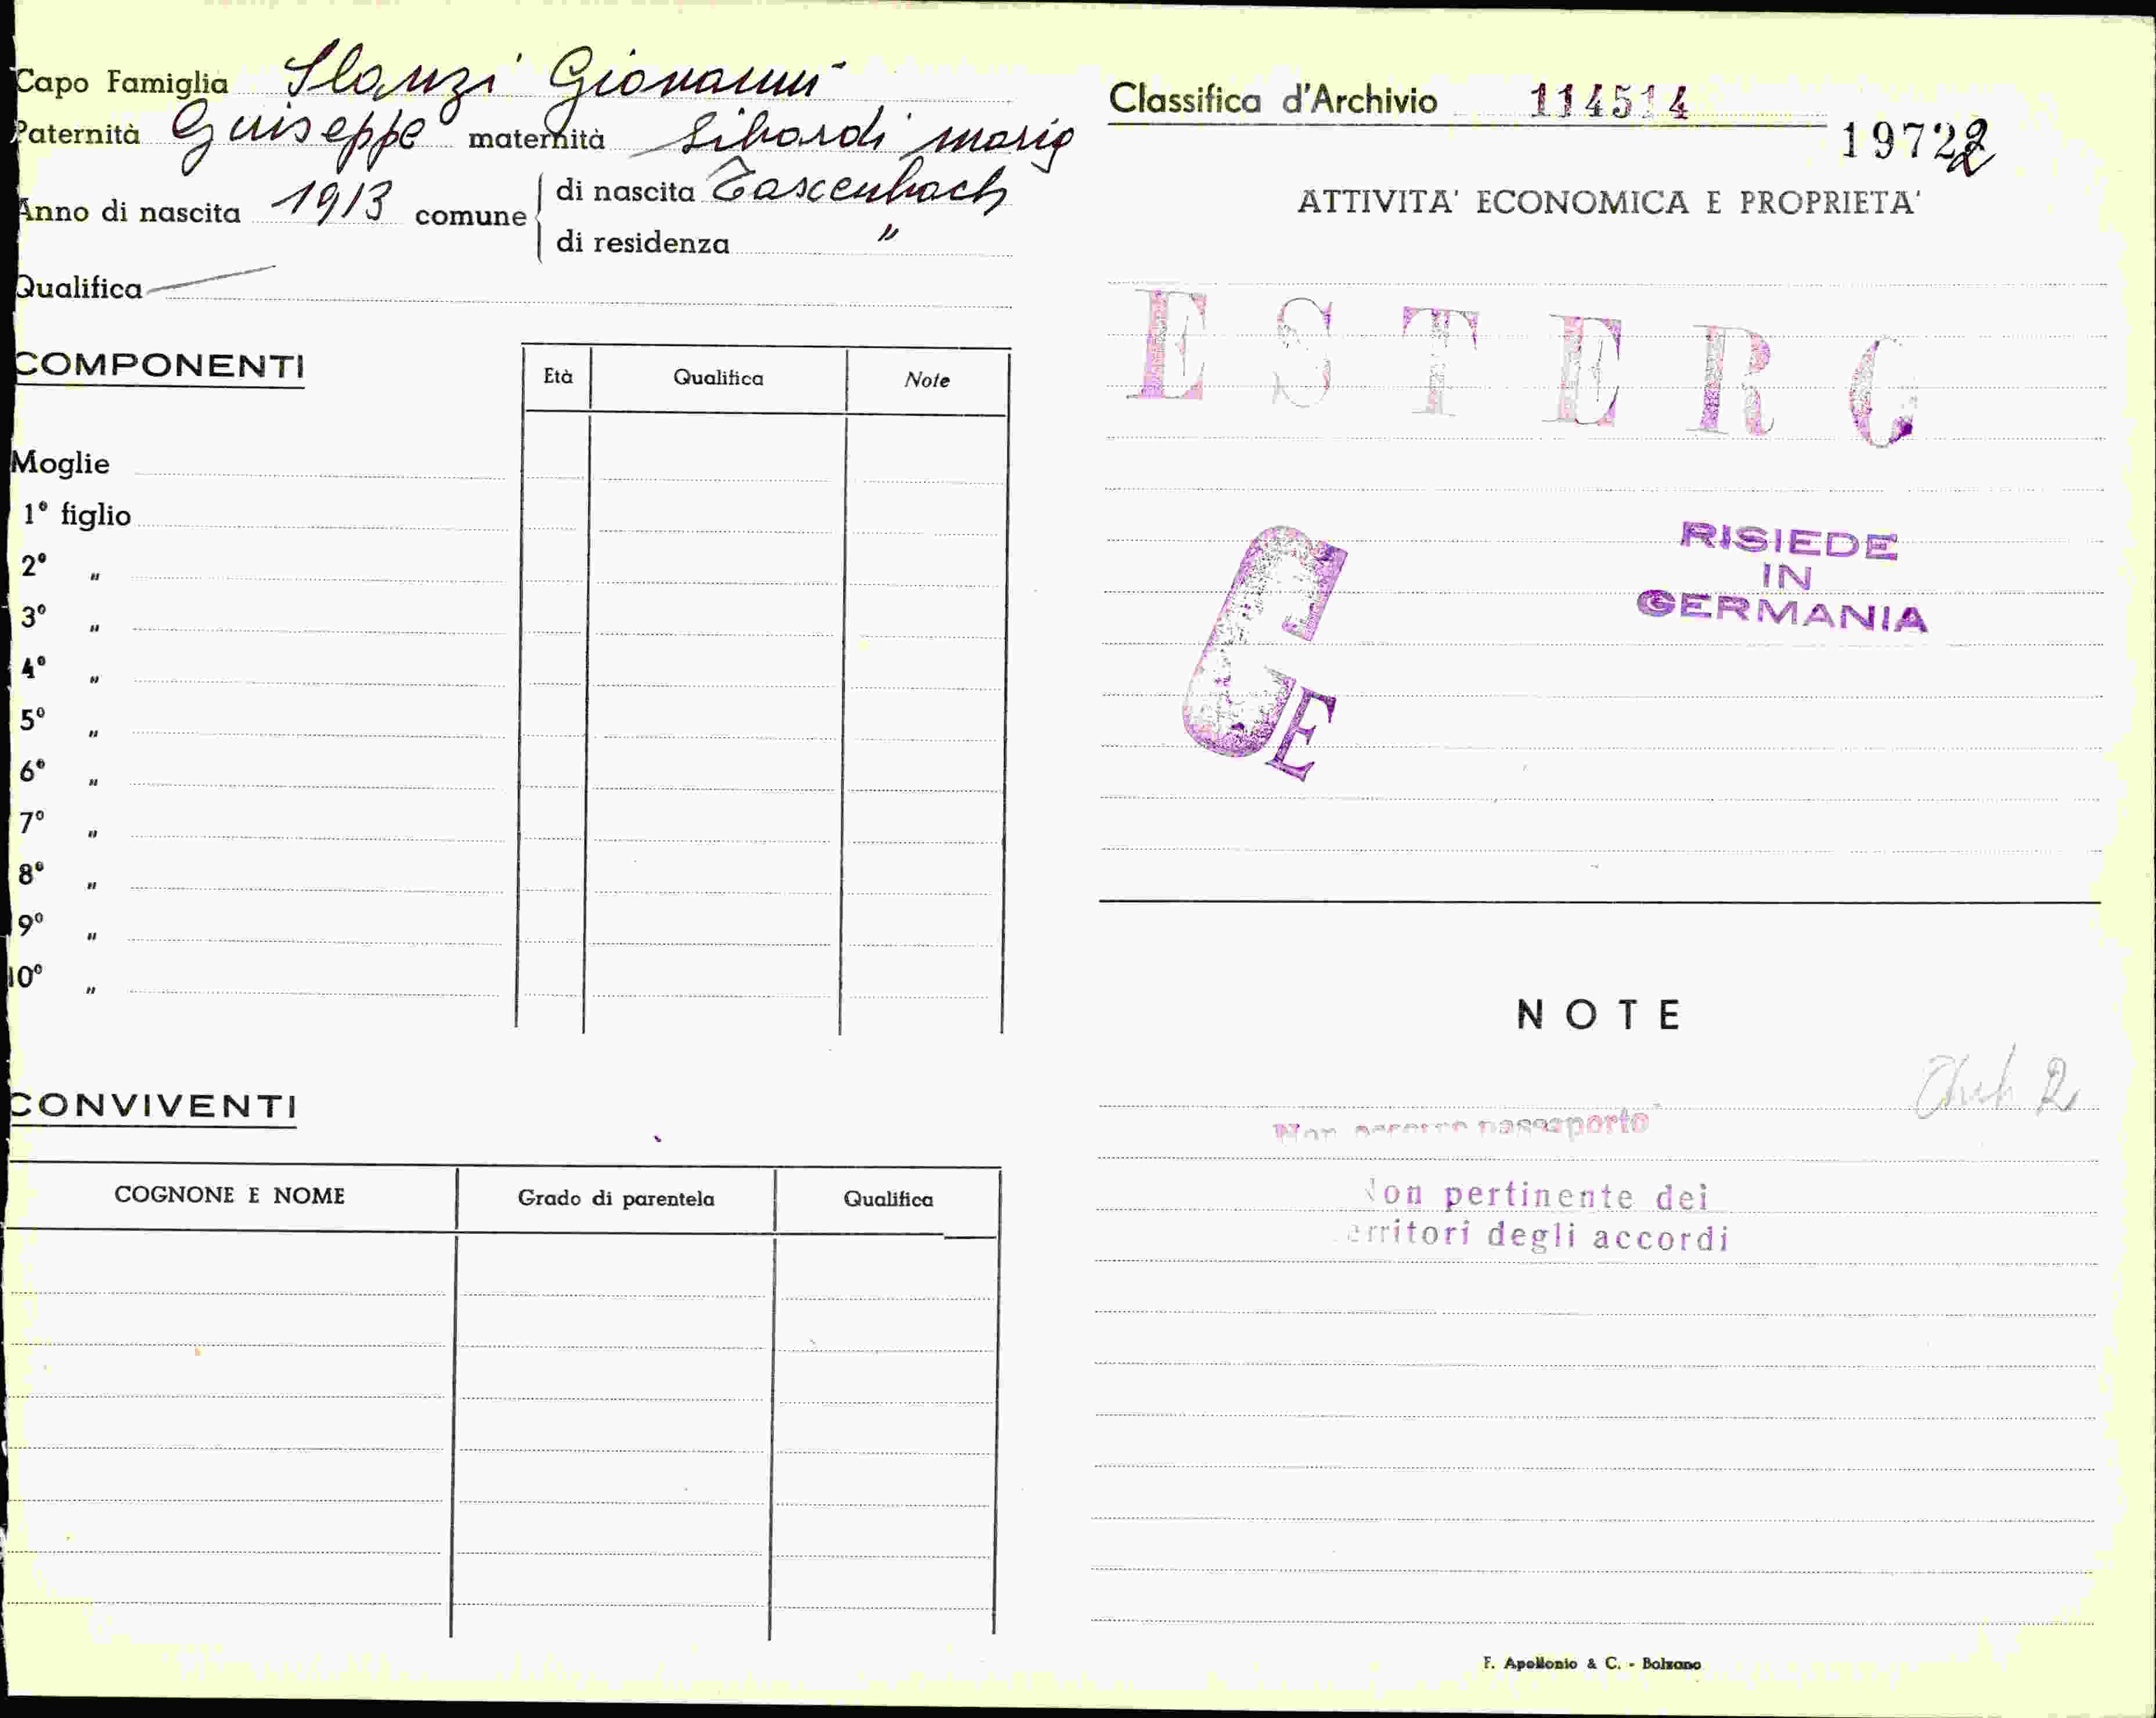 Capo Famiglia Slanzi Giovanni
Paternità Guiseppe maternità Sibardi maria
Anno di nascita 1913 comune di nascita Tascenbach
di residenza "
Qualifica
COMPONENTI
Età Qualifica Note
Moglie
1º figlio
2º "
3º "
4º "
5º "
6º "
7º "
8º "
9º "
10º "
CONVIVENTI
COGNONE E NOME Grado di parentela Qualifica
Classifica d'Archivio 114514
19722
ATTIVITA' ECONOMICA E PROPRIETA'
ESTERO
RISIEDE
IN
GERMANIA
GE
NOTE
2
Non passaporto
Non pertinente dei
territori degli accordi
F. Apollonio & C. - Bolzano